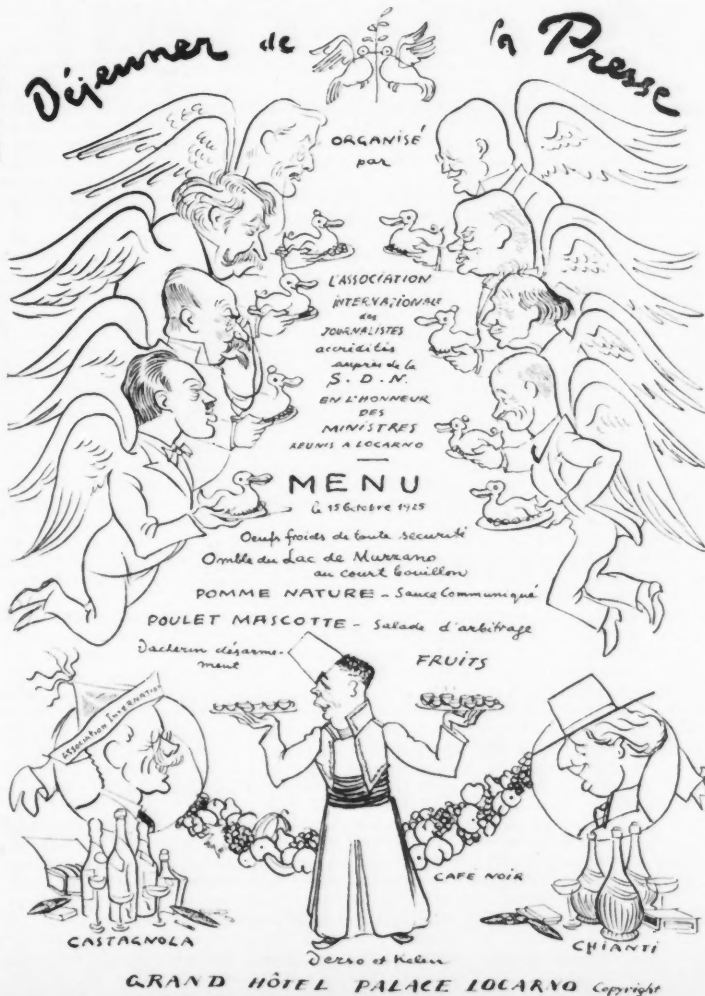 Déjeuner de la Presse
ORGANISÉ
par
L'ASSOCIATION
INTERNATIONALE
des
JOURNALISTES
accrédités
auprès de la
S. D. N.
EN L'HONNEUR
DES
MINISTRES
REUNIS A LOCARNO
MENU
le 15 Octobre 1925
Oeufs froids de toute securité
Omble du Lac de Muzzano
au court bouillon
POMME NATURE - Sauce Communiqué
POULET MASCOTTE - Salade d'arbitrage
Vacherin désarme-
ment
FRUITS
ASSOCIATION INTERNATION
CAFE NOIR
CASTAGNOLA
CHIANTI
Derso et Kelen
GRAND HÔTEL PALACE LOCARNO Copyright